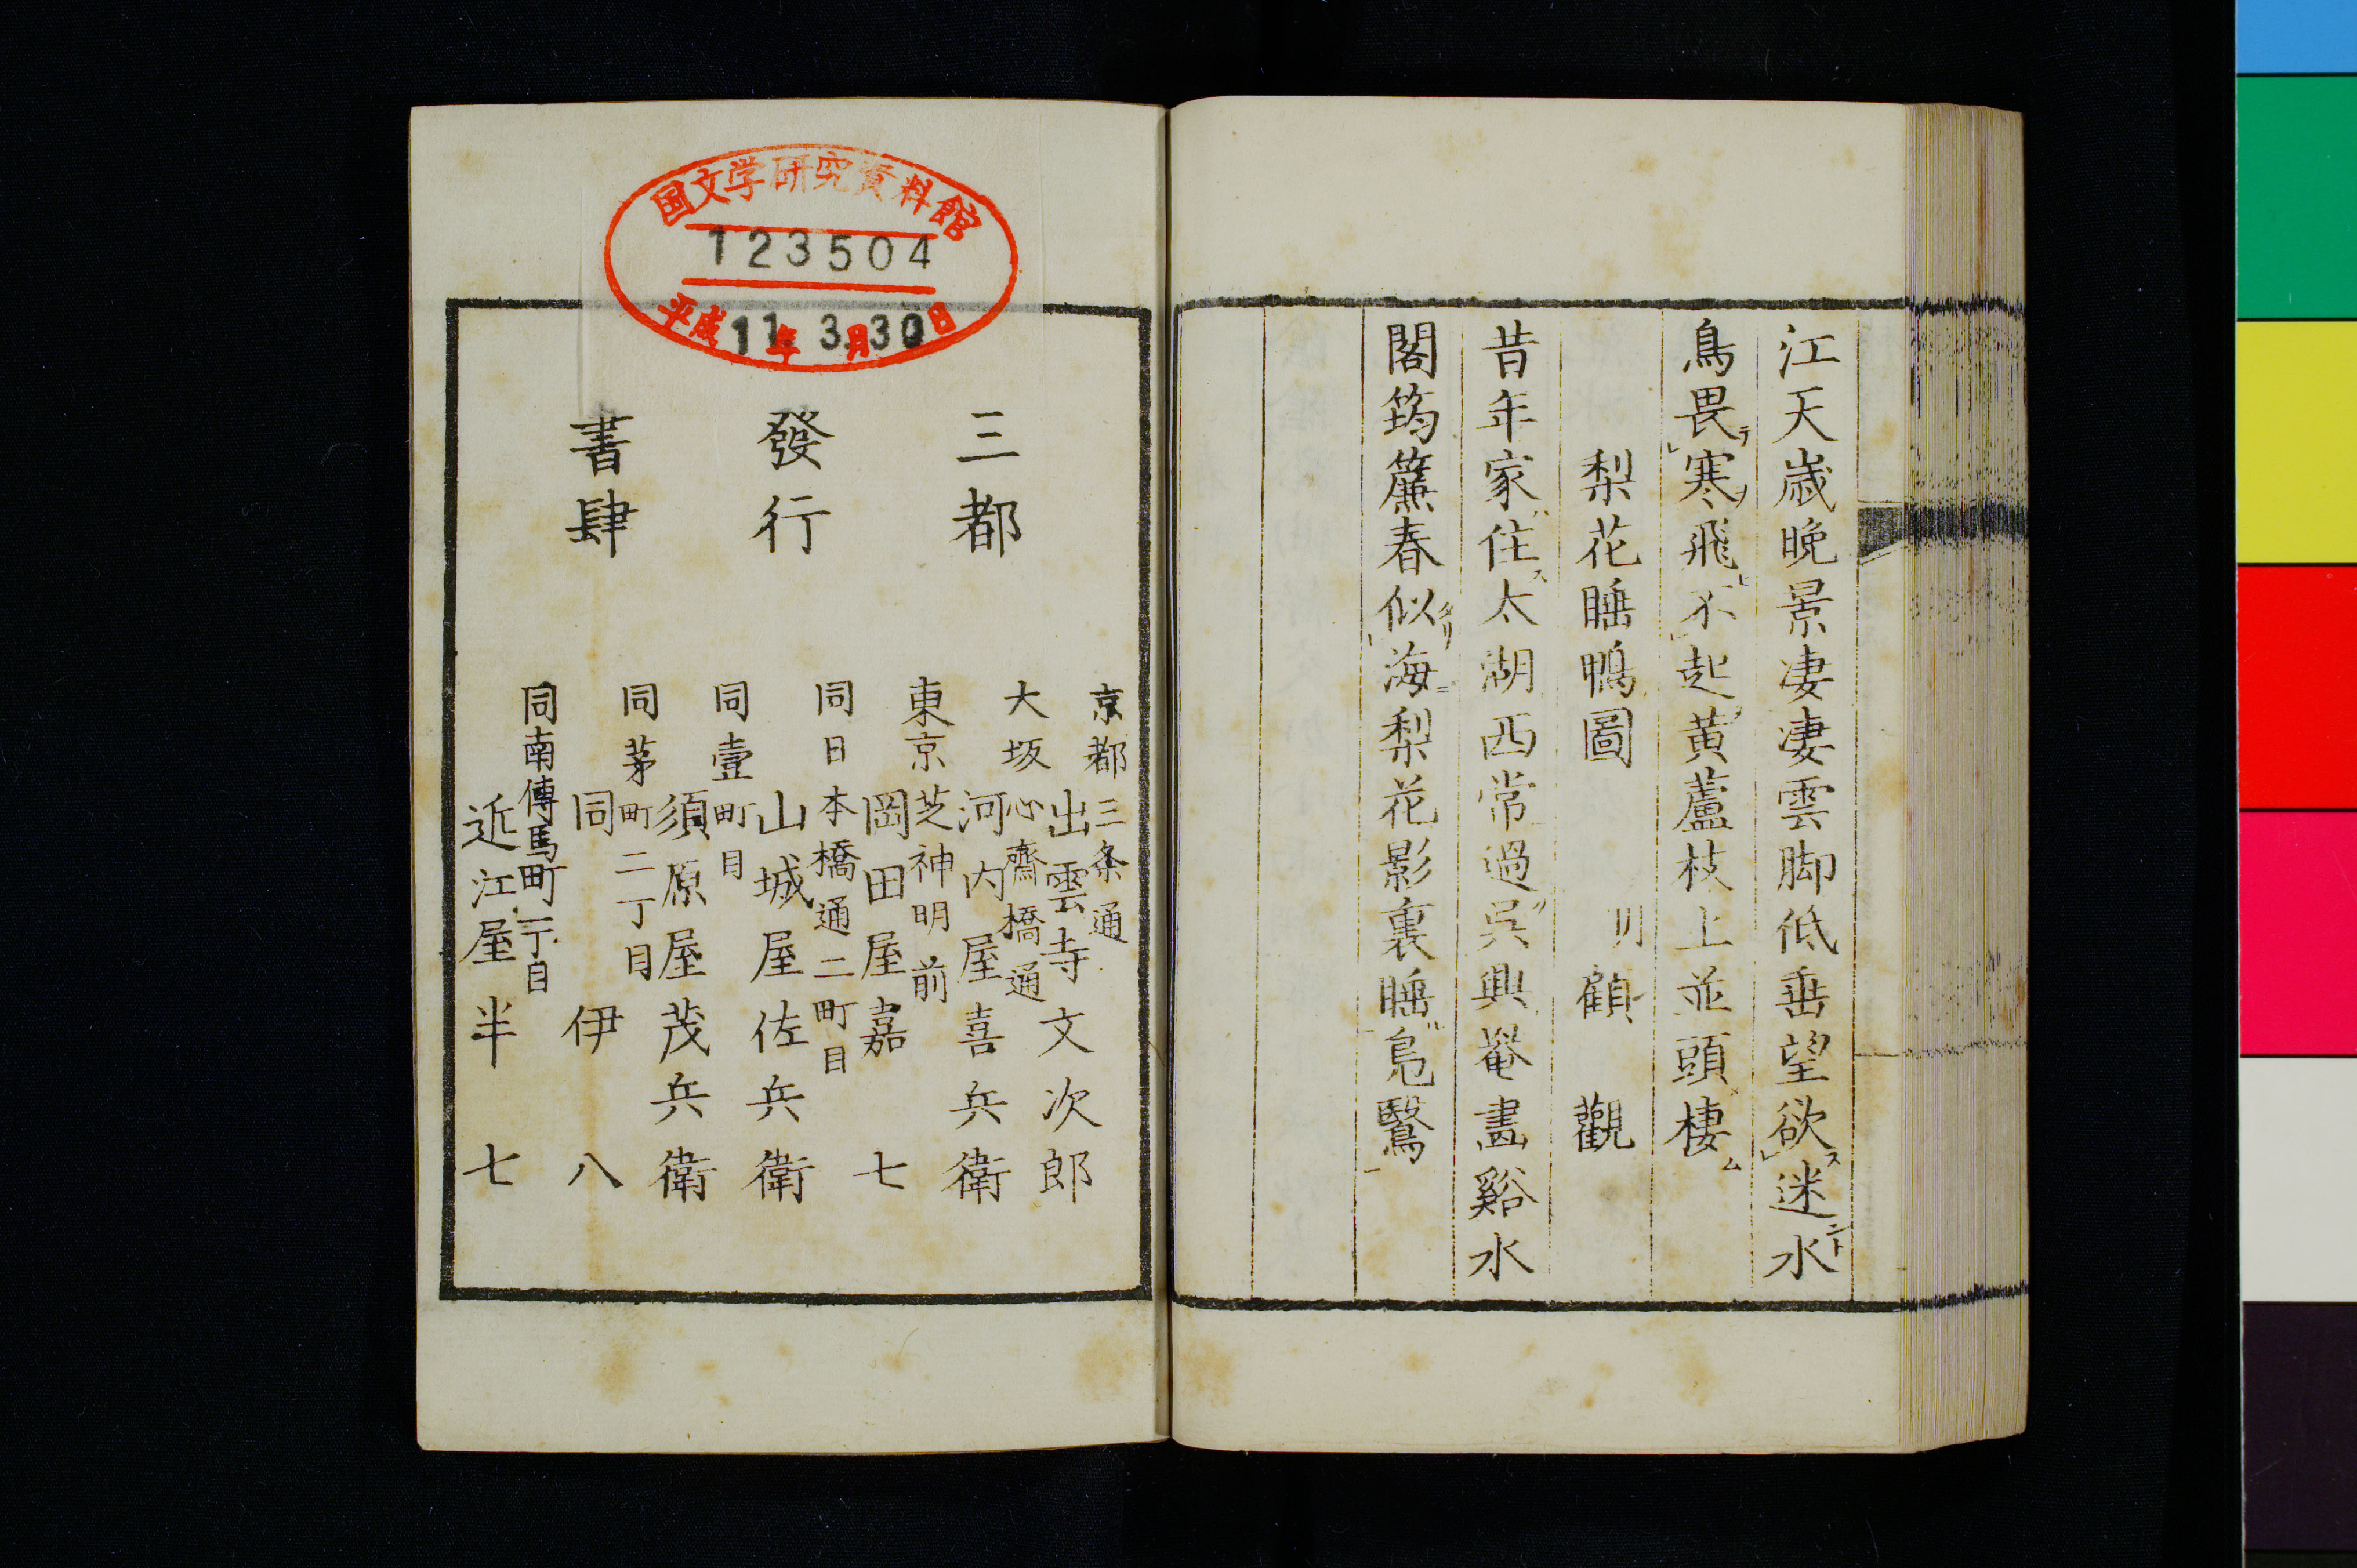 江天歳晩景凄凄雲脚低垂望欲迷水
鳥畏寒飛不起黄蘆枝上並頭棲
梨花睡鴨圖
顧觀
昔年家住太湖西常過呉興罨畫谿水
閣筠簾春似海梨花影裏睡鳬鷖
国文学研究資料館
123504
平成11年3月30日
三都
發行
書肆
京都三条通
出雲寺文次郎
大坂心齋橋通
河内屋喜兵衛
東京芝神明前
岡田屋嘉七
同日本橋通二町目
山城屋佐兵衛
同壹町目
須原屋茂兵衛
同茅町二丁目
同伊八
同南傳馬町一丁目
近江屋半七